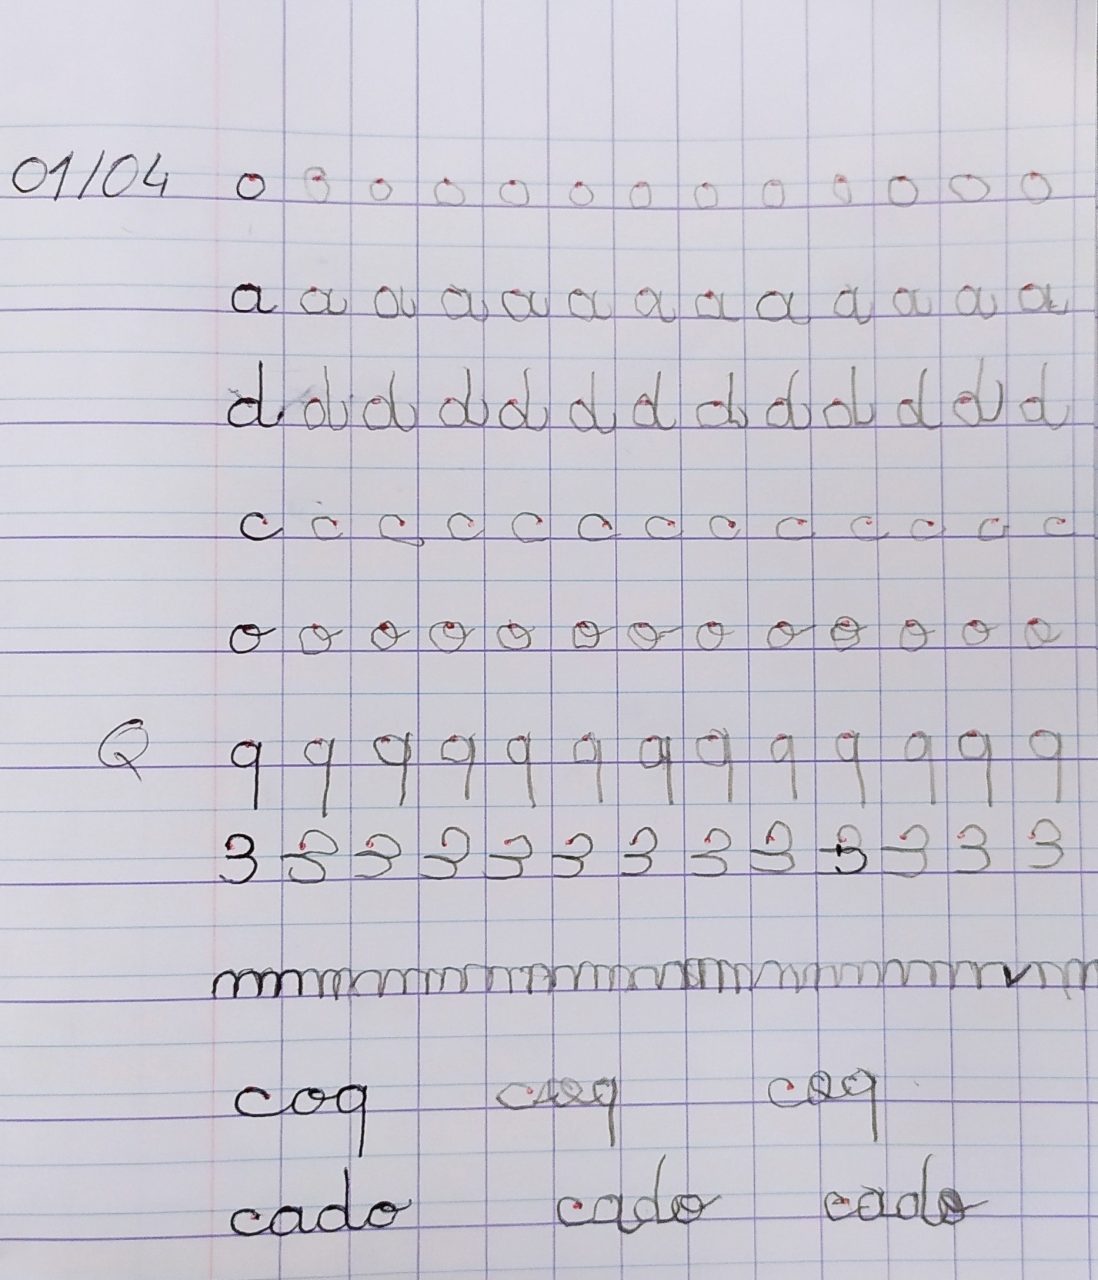 01/04 o o o o o o o o o o o o o
a a a a a a a a a a a a a
d d d d d d d d d d d d d
c c c c c c c c c c c c c
o o o o o o o o o o o o o
Q q q q q q q q q q q q q q
3 3 3 3 3 3 3 3 3 3 3 3 3
coq coq coq
cado cado cado